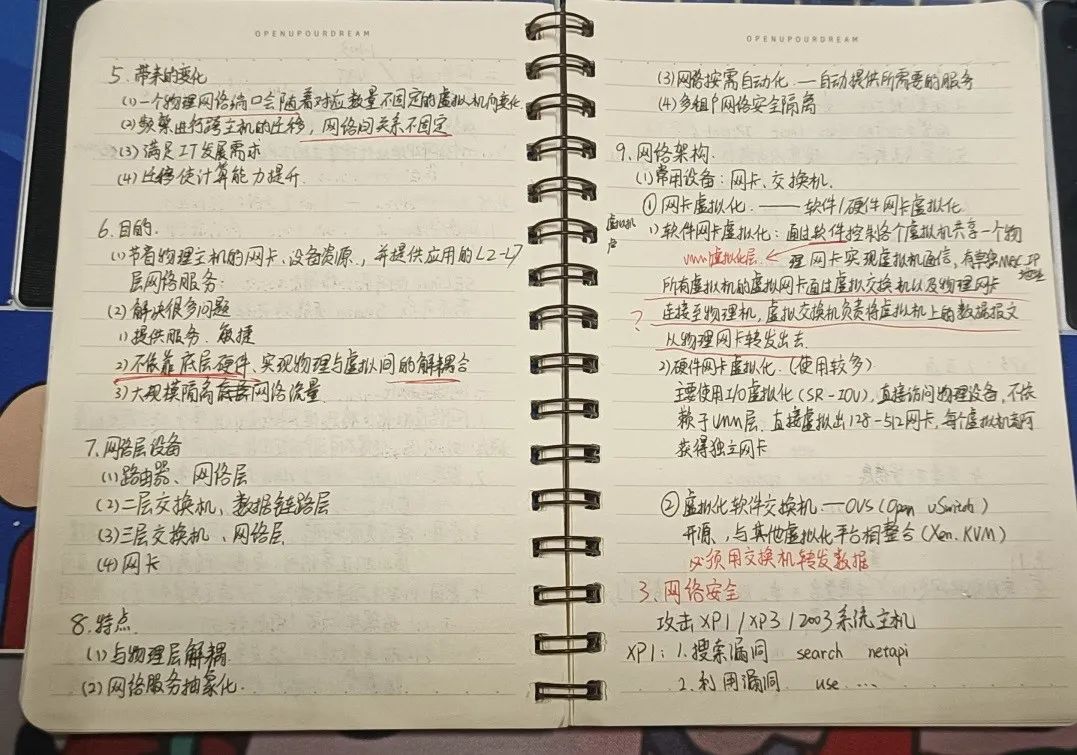 OPENUPOURDREAM
5. 带来的变化
(1)一个物理网络端口会随着对应数量不固定的虚拟机向变化
(2)频繁进行跨主机的迁移，网络间关系不固定
(3)满足IT发展需求
(4)迁移使计算能力提升.
6.目的.
(1)节省物理主机的网卡、设备资源.，并提供应用的L2-L7
层网络服务：
(2)解决很多问题
1)提供服务.敏捷
2)不依靠底层硬件、实现物理与虚拟间的解耦合
3)大规模隔离网络流量
7.网络层设备
(1)路由器、网络层
(2)二层交换机、数据链路层
(3)三层交换机、网络层
(4)网卡
8.特点
(1)与物理层解耦
(2)网络服务抽象化.
OPENUPOURDREAM
(3)网络按需自动化 — 自动提供所需要的服务
(4)多租户网络安全隔离
9.网络架构.
(1)常用设备：网卡、交换机.
①网卡虚拟化. —— 软件/硬件网卡虚拟化
1)软件网卡虚拟化：通过软件控制各个虚拟机共享一个物
vmm虚拟化层 ← 理网卡实现虚拟机通信，有MAC、IP
地址
所有虚拟机的虚拟网卡通过虚拟交换机以及物理网卡
? 连接至物理机，虚拟交换机负责将虚拟机上的数据报文
从物理网卡转发出去.
2)硬件网卡虚拟化.（使用较多）
主要使用I/O虚拟化(SR-IOV)，直接访问物理设备，不依
赖于vmm层.直接虚拟出128-512网卡，每个虚拟机都可
获得独立网卡
②虚拟化软件交换机 —— OVS(Open vSwitch)
开源，与其他虚拟化平台相整合(Xen.KVM)
必须用交换机转发数据
3.网络安全
攻击XP1/XP3/2003系统主机
XP1：1.搜索漏洞 search netapi
2.利用漏洞 use....